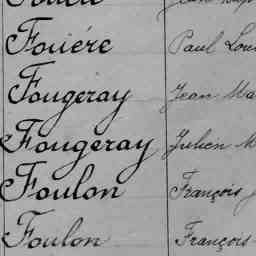 Fouére Paul Lou
Fougeray Jean Ma
Fougeray Julien M
Foulon François
Foulon François